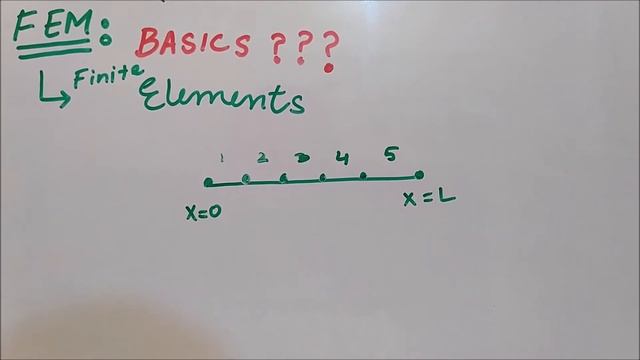 FEM: BASICS ???
Finite Elements
1 2 3 4 5
X=0 X=L